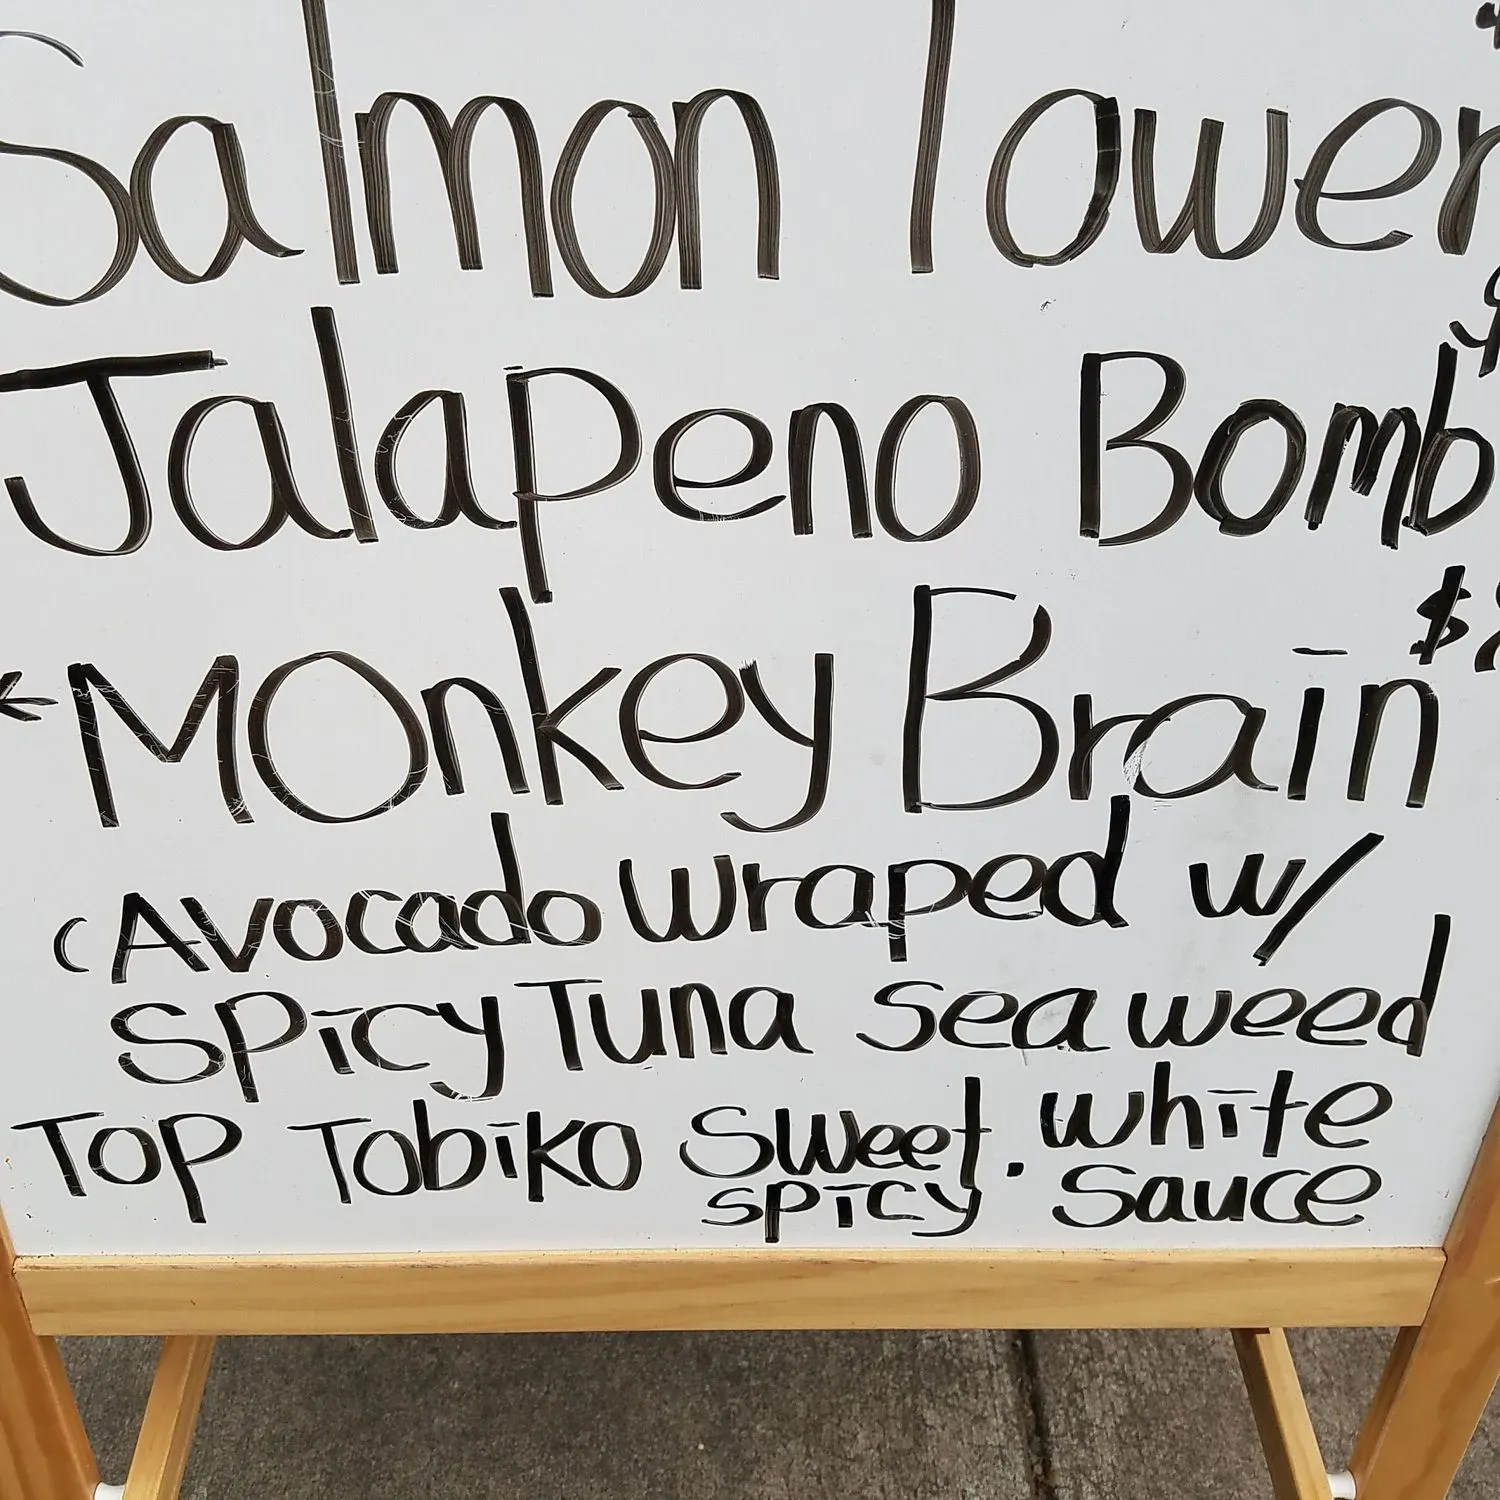 Salmon Tower
Jalapeno Bomb
*Monkey Brain $
(Avocado wraped w/
Spicy Tuna seaweed
Top Tobiko sweet. white
spicy sauce